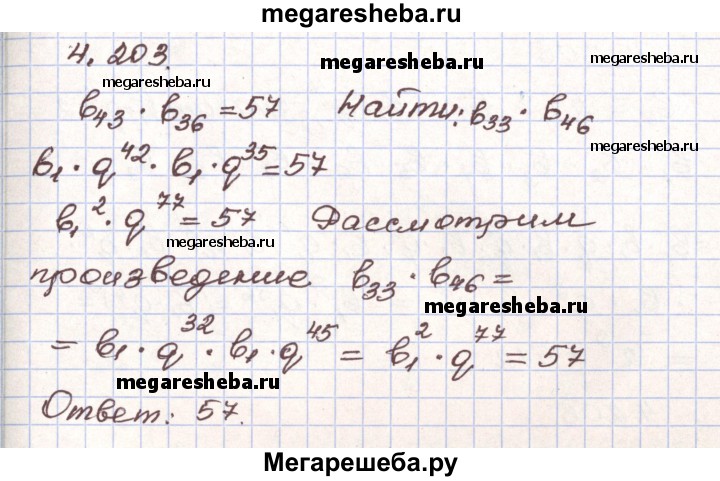 megaresheba.ru
4.203.
megaresheba.ru
megaresheba.ru
megaresheba.ru
b₄₃ · b₃₆ = 57 Найти: b₃₃ · b₄₆
megaresheba.ru
b₁ · q⁴² · b₁ · q³⁵ = 57
b₁² · q⁷⁷ = 57 Рассмотрим
megaresheba.ru
произведение b₃₃ · b₄₆ =
megaresheba.ru
= b₁ · q³² · b₁ · q⁴⁵ = b₁² · q⁷⁷ = 57
megaresheba.ru
Ответ: 57.
Мегарешеба.ру